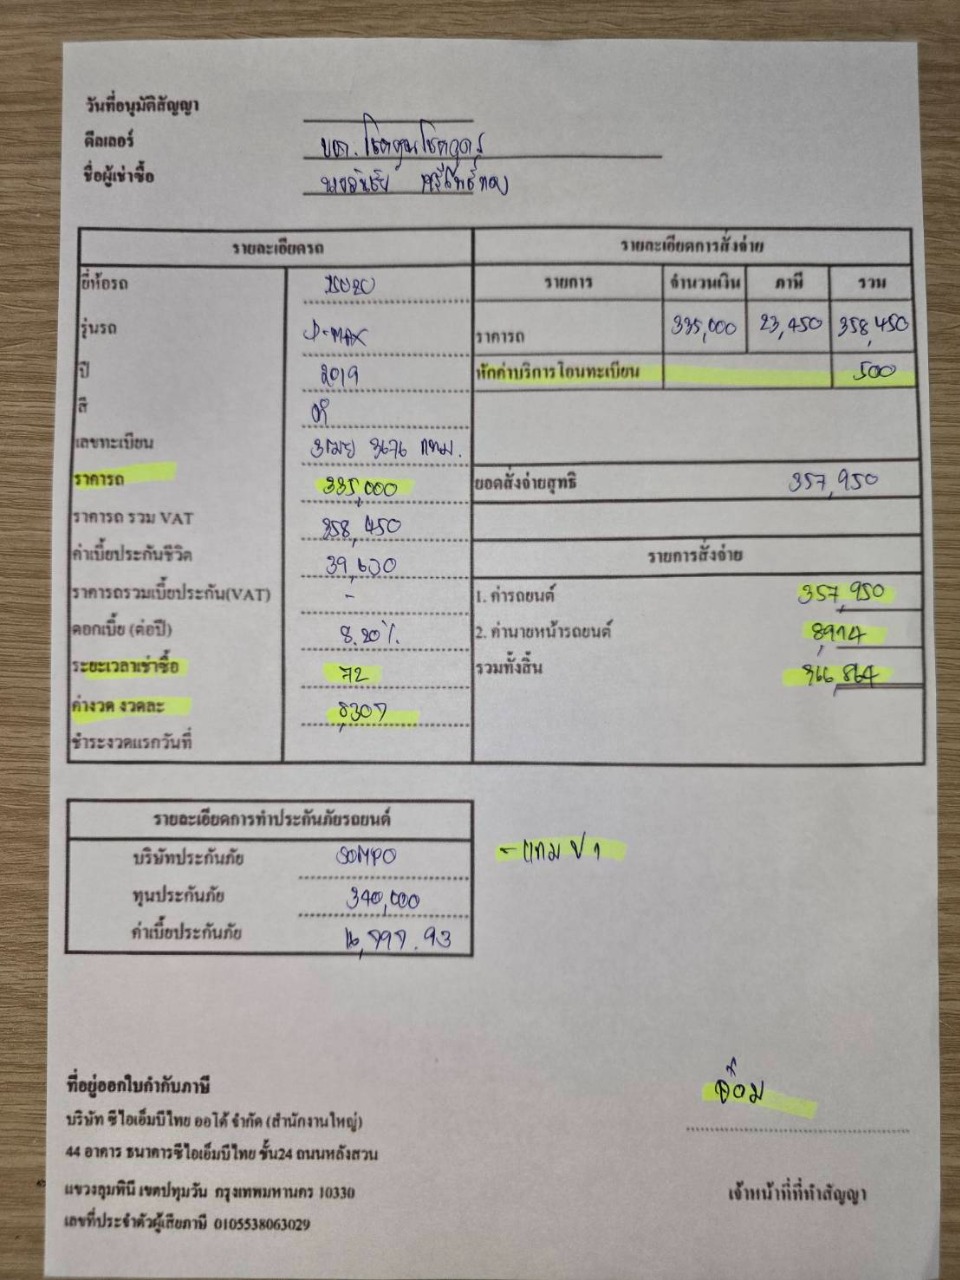 วันที่อนุมัติสัญญา
ดีลเลอร์ บจก. โชคคูณโชคถาวร
ชื่อผู้เช่าซื้อ
รายละเอียดรถ
ยี่ห้อรถ ISUZU
รุ่นรถ D-MAX
ปี 2019
สี ดำ
เลขทะเบียน 3676 กทม.
ราคารถ 335,000
ราคารถ รวม VAT 358,450
ค่าเบี้ยประกันชีวิต
ราคารถรวมเบี้ยประกัน(VAT) -
ดอกเบี้ย (ต่อปี) 8.20%
ระยะเวลาเช่าซื้อ 72
ค่างวด งวดละ 8307
ชำระงวดแรกวันที่
รายละเอียดการสั่งจ่าย
รายการ จำนวนเงิน ภาษี รวม
ราคารถ 335,000 23,450 358,450
หักค่าบริการโอนทะเบียน 500
ยอดสั่งจ่ายสุทธิ 357,950
รายการสั่งจ่าย
1. ค่ารถยนต์ 357,950
2. ค่านายหน้ารถยนต์ 8,914
รวมทั้งสิ้น 366,864
รายละเอียดการทำประกันภัยรถยนต์
บริษัทประกันภัย SOMPO
ทุนประกันภัย 340,000
ค่าเบี้ยประกันภัย
- แถม ป 1
ที่อยู่ออกใบกำกับภาษี
บริษัท ซีไอเอ็มบีไทย ออโต้ จำกัด (สำนักงานใหญ่)
44 อาคาร ธนาคารซีไอเอ็มบีไทย ชั้น24 ถนนหลังสวน
แขวงลุมพินี เขตปทุมวัน กรุงเทพมหานคร 10330
เลขที่ประจำตัวผู้เสียภาษี 0105538063029
อ้อม
เจ้าหน้าที่ที่ทำสัญญา